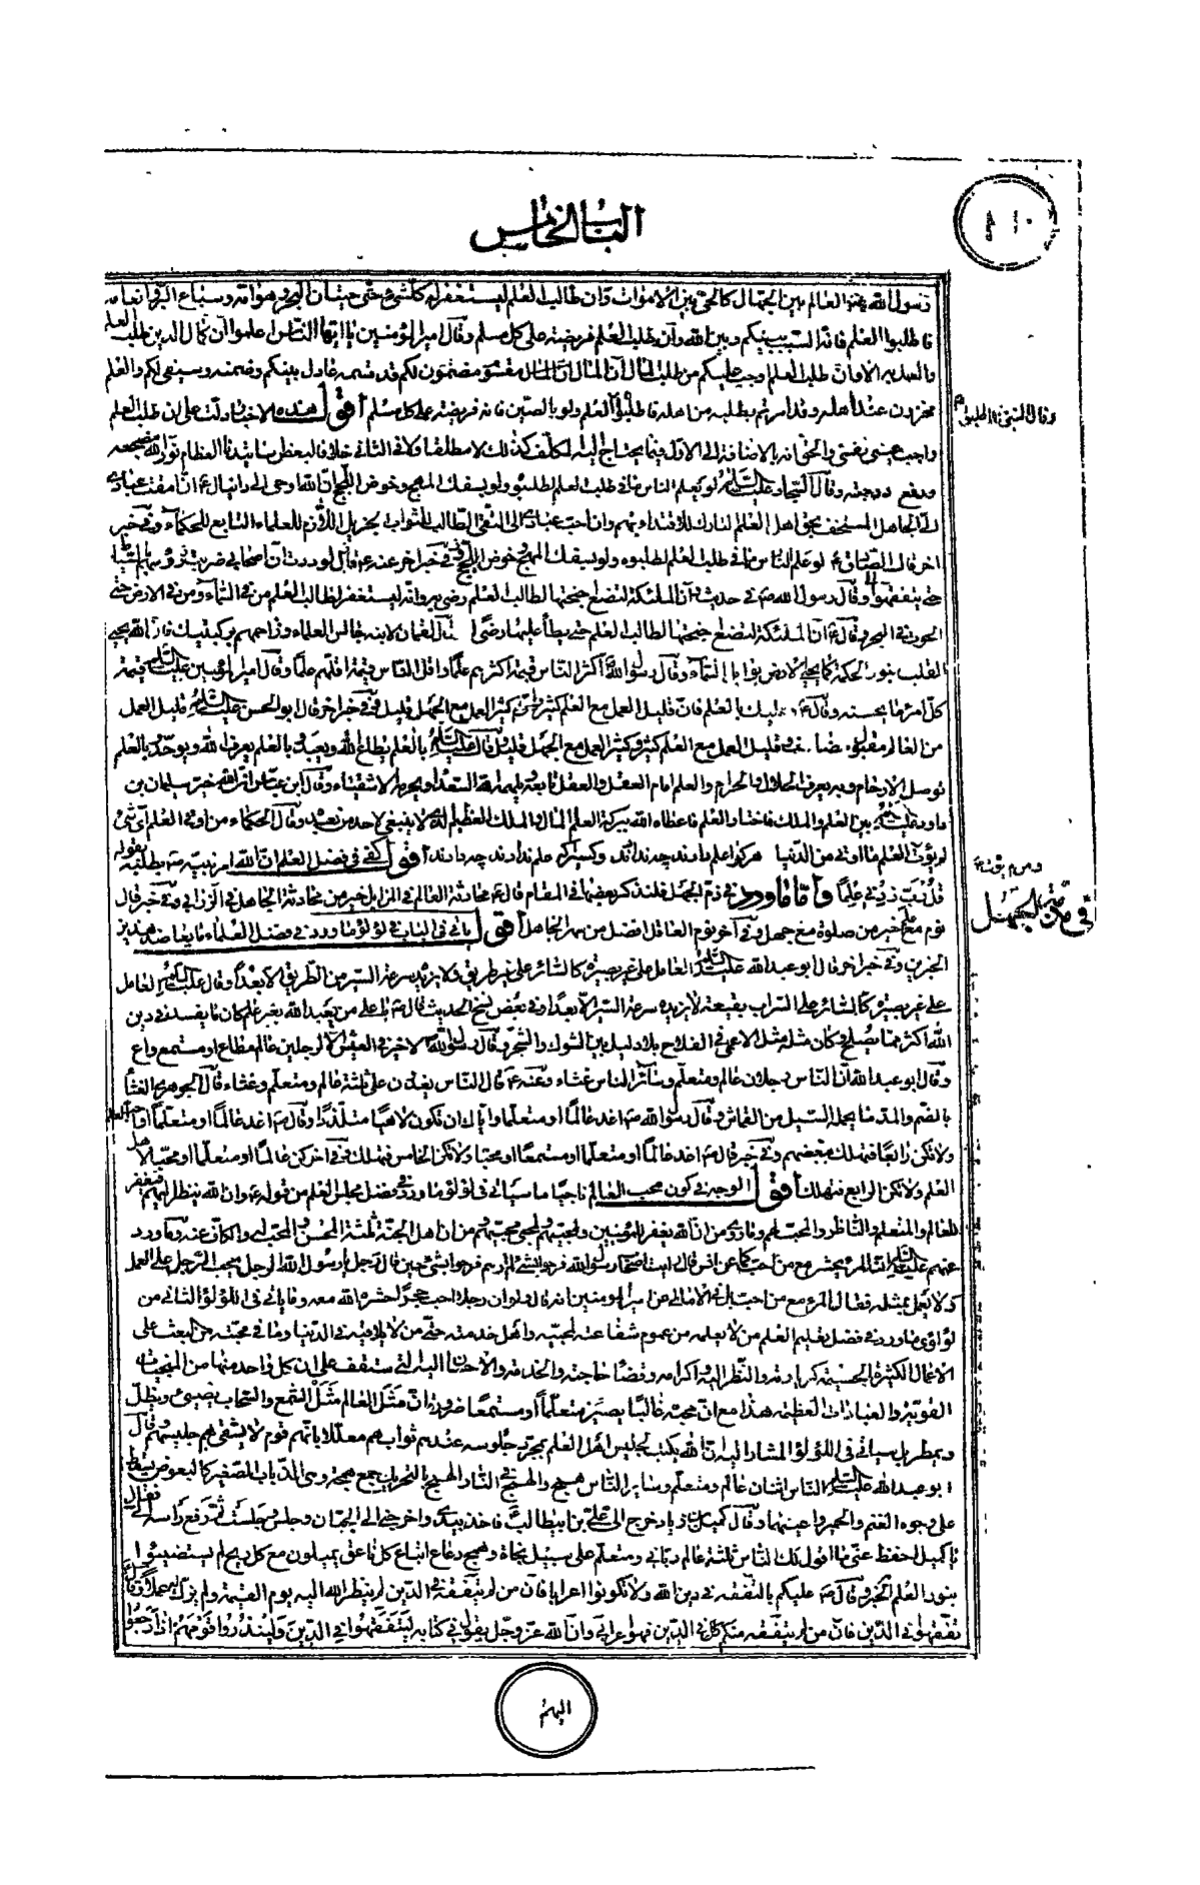 الباب الخامس
رسول الله ص العالم بين الجهال كالحي بين الاموات وان طالب العلم ليستغفر له كل شيء حتى حيتان البحر وهوامه وسباع البر وانعامه
فاطلبوا العلم فانه السبب بينكم وبين الله وان طلب العلم فريضة على كل مسلم وقال امير المؤمنين يا ايها الناس اعلموا ان كمال الدين طلب العلم
والعمل به الا وان طلب العلم اوجب عليكم من طلب المال ان المال مقسوم مضمون لكم قد قسمه عادل بينكم وضمنه وسيفي لكم والعلم
مخزون عند اهله وقد امرتم بطلبه من اهله فاطلبوا العلم ولو بالصين فانه فريضة على كل مسلم اقول هذه الاخبار دلت على ان طلب العلم
وقال النبي ص اطلبوا
واجب عيني نفسي والحق انه بالاضافة الى الاول فيما يحتاج اليه المكلف كذلك لا مطلقا ولا في الثاني خلافا لبعض مشايخنا العظام نور الله مضجعه
ورفع درجته وقال السجاد عليه السلام لو يعلم الناس ما في طلب العلم لطلبوه ولو بسفك المهج وخوض اللجج ان الله اوحى الى دانيال ع ان امقت عبادي
الي الجاهل المستخف بحق اهل العلم التارك للاقتداء بهم وان احب عبادي الى التقي الطالب للثواب الجزيل اللازم للعلماء التابع للحكماء وفي خبر
اخر قال الصادق ع لو علم الناس ما في طلب العلم لطلبوه ولو بسفك المهج وخوض اللجج وفي خبر اخر عنه ع قال لوددت ان اصحابي ضربت رؤسهم بالسياط
حتى يتفقهوا وقال رسول الله ص في حديث ان الملئكة لتضع اجنحتها لطالب العلم رضى به وانه ليستغفر لطالب العلم من في السماء ومن في الارض حتى
الحوت في البحر وقال ع ان الملئكة لتضع اجنحتها لطالب العلم حتى يطأ عليها رضى قال لقمان لابنه جالس العلماء وزاحمهم بركبتيك فان الله يحيي
القلب بنور الحكمة كما يحيي الارض بوابل السماء وقال رسول الله اكثر الناس قيمة اكثرهم علما واقل الناس قيمة اقلهم علما وقال امير المؤمنين عليه السلام قيمة
كل امرء ما يحسنه وقال ع عليك بالعلم فان قليل العمل مع العلم كثير وكثير العمل مع الجهل قليل وفي خبر اخر قال ابو الحسن عليه السلام قليل العمل
من العالم مقبول مضاعف وقليل العمل مع العلم كثير وكثير العمل مع الجهل قليل وقال عليه السلام بالعلم يطاع الله ويعبد بالعلم يعرف الله ويوحد بالعلم
توصل الارحام وبه يعرف الحلال والحرام والعلم امام العقل والعقل تابعه يلهمه الله السعداء ويحرمه الاشقياء وقال ابن عباس ان الله خير سليمان بن
داود عليه السلام بين العلم والملك فاختار العلم فاعطاه الله ببركة العلم المال والملك العظيم الذي لا ينبغي لاحد من بعده وقال الحكماء من اوتي العلم اي شيء
لم يؤت العلم ما اوتي من الدنيا هركرا علم دادند چه ندادند وكسيرا كه علم ندادند چه دادند اقول كفى في فضل العلم ان الله امر نبيه ص بطلبه بقوله
قل رب زدني علما واما ما ورد في ذم الجهل فلنذكر بعضها في المقام قال ع محادثة العالم في المزابل خير من محادثة الجاهل في الزرابي وفي خبر قال
في مذمة الجهل
نوم مع علم خير من صلوة مع جهل وفي اخر نوم العاقل افضل من سهر الجاهل اقول ياتي في الباب في لؤلؤ ما ورد في فضل العلماء ما يعاضد هذين
الخبرين وفي خبر اخر قال ابو عبد الله عليه السلام العامل على غير بصيرة كالسائر على غير طريق ولا يزيد سرعة السير من الطريق الا بعدا وقال عليه السلام العامل
على غير بصيرة كالسائر على السراب بقيعة لا يزيده سرعة السير الا بعدا وفي بعض نسخ الحديث قال ص يا علي من يعبد الله بغير علم كان ما يفسد في دين
الله اكثر مما يصلح وكان مثله مثل الاعمى في الفلاح بلا دليل بين الشوك والشجر وقال رسول الله لا خير في العيش الا لرجلين عالم مطاع او مستمع واع
وقال ابو عبد الله ان الناس رجلان عالم ومتعلم وسائر الناس غثاء وعنه ع قال الناس يغدون على ثلثة عالم ومتعلم وغثاء قال الجوهري الغثا
بالضم والمد ما يحمله السيل من القماش وقال رسول الله ص اغد عالما او متعلما واياك ان تكون لاهيا متلذذا وقال ص اغد عالما او متعلما او احب العلماء
ولا تكن رابعا فتهلك ببغضهم وفي خبر قال ص اغد عالما او متعلما او مستمعا او محبا ولا تكن الخامس فتهلك وفي اخر كن عالما او متعلما او محبا لاهل
العلم ولا تكن الرابع فتهلك اقول الوجه في كون محب العالم ناجيا ما سياتي في لؤلؤ ما ورد في فضل مجلس العلم من قوله ع وان الله ينظر اليهم فيغفر
للعالم والمتعلم والناظر والمحب لهم وما ورد من ان الله يغفر للمؤمنين ولمحبيهم ولمحبي محبيهم ومن ان اهل الجنة ثلثة المحسن والمحب له والكاف عنه وما ورد
عنهم عليهم السلام ان المرء يحشر مع من احب كما عن انس قال رايت اصحاب رسول الله فرحوا بشيء لم ارهم فرحوا بشيء حين قال رجل يا رسول الله الرجل يحب الرجل على العمل
كذا لا يعمل بمثله فقال المرء مع من احب بل في الامالي عن امير المؤمنين انه قال ولو ان رجلا احب حجرا لحشره الله معه وما ياتي في اللؤلؤ الثاني من
لؤلؤي ما ورد في فضل تعليم العلم من لا يعلمه من عموم شفاعته لمحبيه واهل خدمته حتى من لا يلاقيه في الدنيا وما في محبته من البعث على
الاعمال الكثيرة الحسنة كزيارته والنظر اليه واكرامه وقضاء حاجته والخدمة والاحسان اليه التي ستقف على ان كل واحد منها من المنجيات
القوية والعبادات العظيمة هذا مع ان محبه غالبا يصير متعلما او مستمعا ضرورة ان مثل العالم مثل الشمع والسحاب يضيئ ويظل
ويمطر بل سياتي في اللؤلؤ المشار اليه ان الله يكتب لجليس اهل العلم بمجرد جلوسه عندهم ثوابهم معللا بانهم قوم لا يشقى بهم جليسهم وقال
ابو عبد الله عليه السلام الناس اثنان عالم ومتعلم وسائر الناس همج والهمج في النار الهمج بالتحريك جمع همجة وهي الذباب الصغير كالبعوض يسقط
على وجوه الغنم والحمير واعينهما وقال كميل بن زياد خرج الي علي بن ابيطالب فاخذ بيدي واخرجني الى الجبان وجلس وجلست ثم رفع راسه الي فقال
يا كميل احفظ عني ما اقول لك الناس ثلثة عالم رباني ومتعلم على سبيل نجاة وهمج رعاع اتباع كل ناعق يميلون مع كل ريح لم يستضيئوا
بنور العلم الخبر وقال ص عليكم بالتفقه في دين الله ولا تكونوا اعرابا فان من لم يتفقه في الدين لم ينظر الله اليه يوم القيمة ولم يزك له عملا وقال
تفقهوا في الدين فان من لم يتفقه منكم في الدين فهو اعرابي وان الله عز وجل يقول في كتابه ليتفقهوا في الدين ولينذروا قومهم اذا رجعوا
اليهم